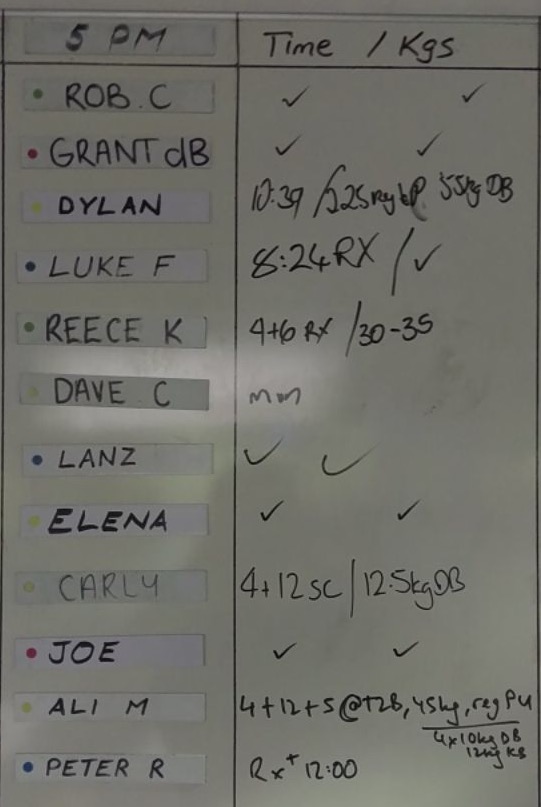 5 PM Time / Kgs
ROB. C ✓ ✓
GRANT dB ✓ ✓
DYLAN 10:39 / 55kg DB
LUKE F 8:24 RX / ✓
REECE K 4+6 RX / 30-35
DAVE C
LANZ ✓ ✓
ELENA ✓ ✓
CARLY 4+12 SC / 12.5kg DB
JOE ✓ ✓
ALI M 4+12+5 @T2B, 45kg, reg PU
4x10kg DB
12kg KB
PETER R Rx+ 12:00